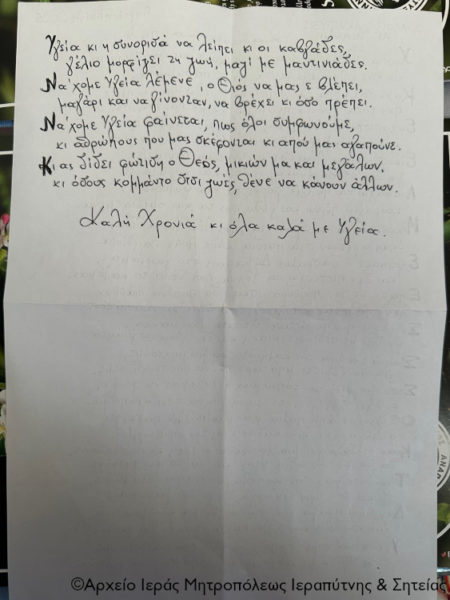 Υγεία κι η συνοριδά να λείπει κι οι καβγάδες,
γέλιο μορφίζει τη ζωή, μαζί με μαντινιάδες.
Νά'χομε Υγεία λέμενε, ο Θιός να μας ε βλέπει,
μαγάρι και να γίνονταν, να βρέχει κι όσο πρέπει.
Νά'χομε Υγεία φαίνεται, πως όλοι συμφωνούμε,
κι αθρώπους που μας σκέφτονται κι απού μας αγαπούνε.
Κι ας δίδει φώτιση ο Θεός, μικιών μα και μεγάλων.
κι όσους κομμάντο στσι ζωές, θένε να κάνουν άλλων.
Καλή Χρονιά κι όλα καλά με Υγεία.
ΑΝΑΡ
©Αρχείο Ιεράς Μητροπόλεως Ιεραπύτνης & Σητείας